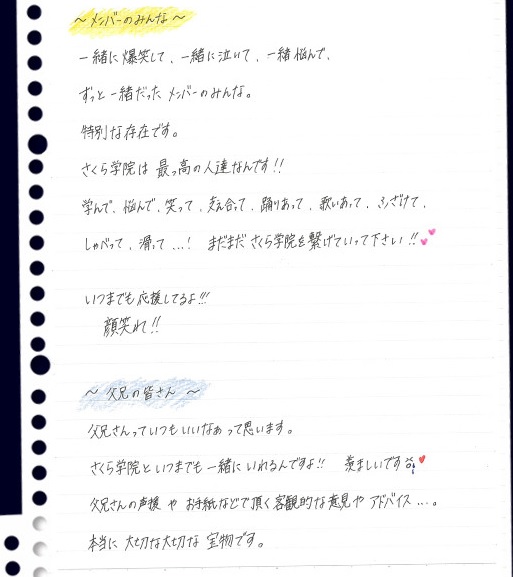 ～メンバーのみんな～
一緒に爆笑して、一緒に泣いて、一緒悩んで、
ずっと一緒だったメンバーのみんな。
特別な存在です。
さくら学院は最っ高の人達なんです!!
学んで、悩んで、笑って、支え合って、踊りあって、歌いあって、ふざけて、
しゃべって、滑って…! まだまださくら学院を繋げていって下さい!!
いつまでも応援してるよ!!!
顔笑れ!!
～父兄の皆さん～
父兄さんっていつもいいなぁって思います。
さくら学院といつまでも一緒にいれるんですよ!! 羨ましいです
父兄さんの声援やお手紙などで頂く客観的な意見やアドバイス…。
本当に大切な大切な宝物です。